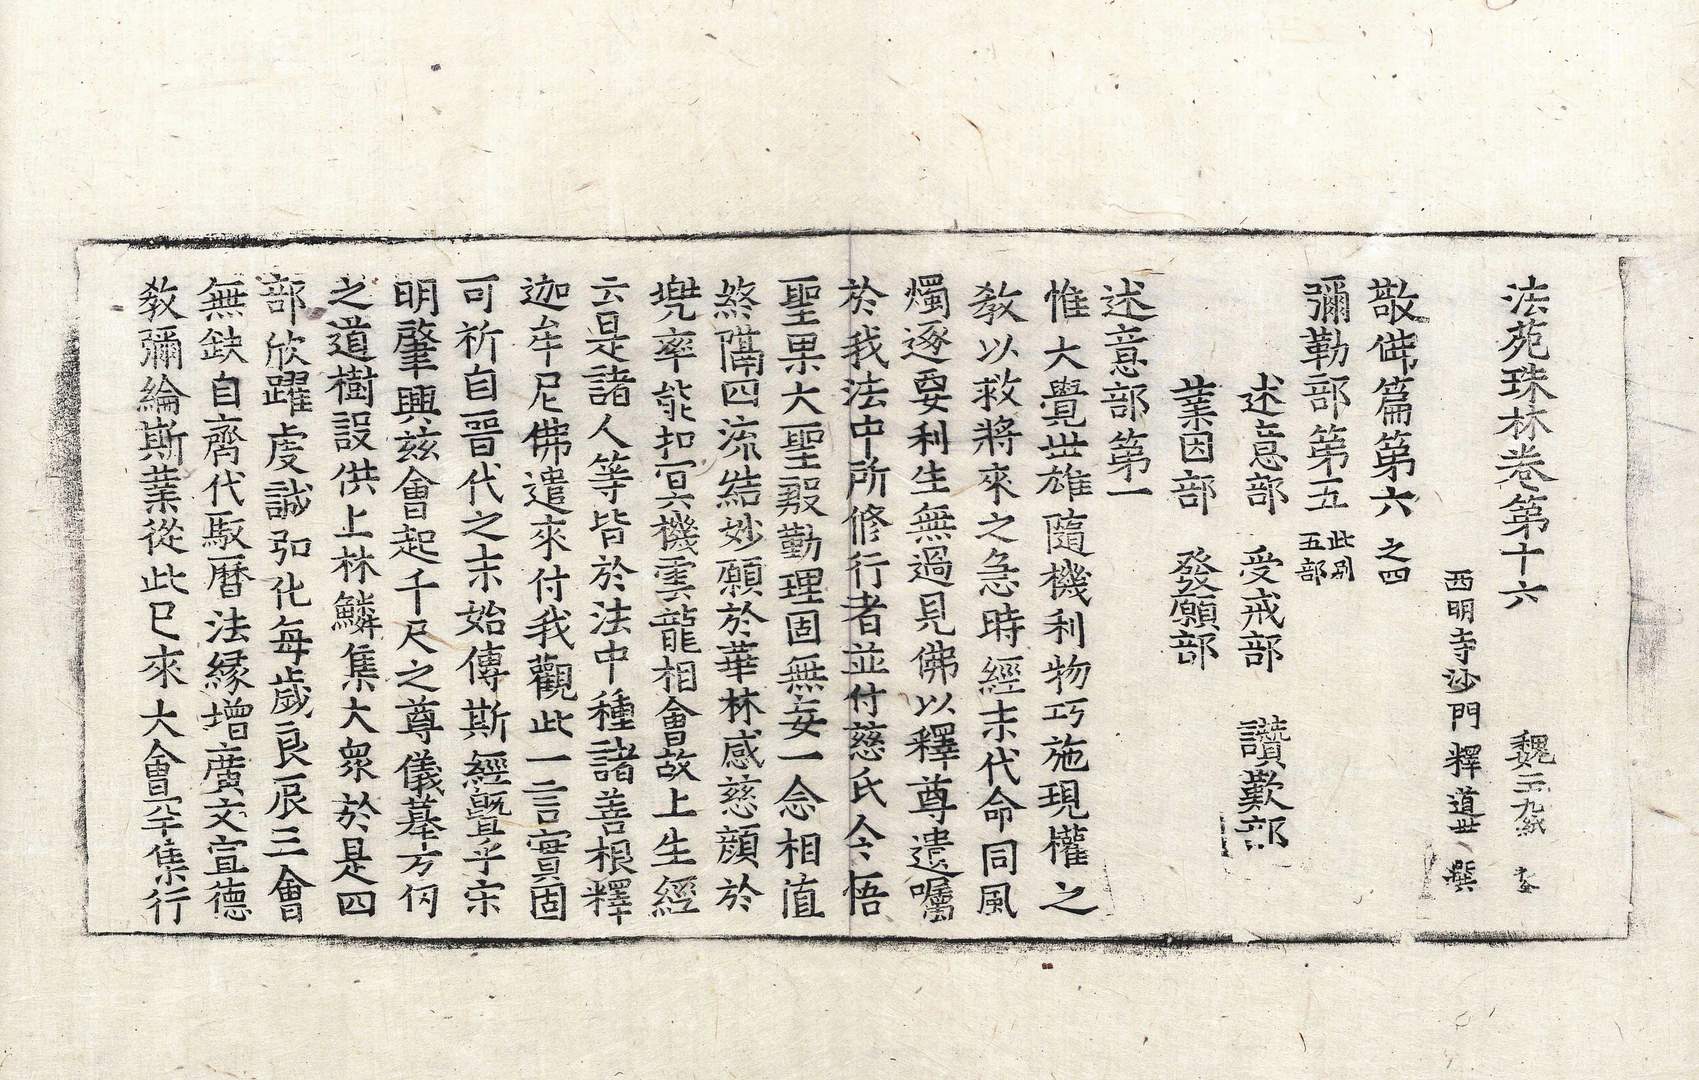 法苑珠林卷第十六
西明寺沙門釋道世撰
敬佛篇第六之四
彌勒部第五 此別五部
述意部 受戒部 讚歎部
業因部 發願部
述意部第一
惟大覺世雄隨機利物巧施現權之
教以救將來之急時經末代命同風
燭逐要利生無過見佛以釋尊遺囑
於我法中所修行者並付慈氏令悟
聖果大聖殷勤理固無妄一念相值
終隔四流結妙願於華林感慈顏於
兜率能扣冥機雲龍相會故上生經
云是諸人等皆於法中種諸善根釋
迦牟尼佛遣來付我觀此一言實固
可祈自晉代之末始傳斯經曁乎宋
明肇興茲會起千尺之尊儀摹万仞
之道樹設供上林鱗集大衆於是四
部欣躍虔誠弘化每歲良辰三會
無缺自齊代馭曆法緣增廣文宣德
教彌綸斯業從此已來大會罕集行